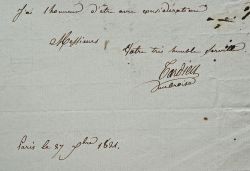 J'ai l'honneur d'être avec considération
Messieurs
Votre très humble serviteur
Tardieu
Paris le 27 9bre 1821.